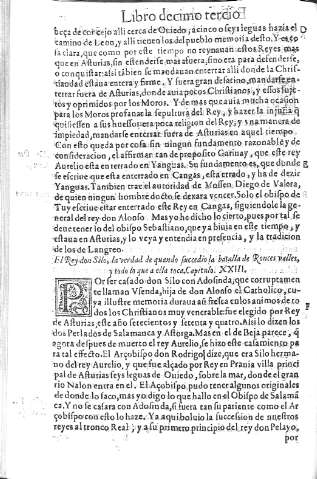 Libro decimo tercio
beça de concejo alli cerca de Ouiedo, a cinco o seys leguas hazia el
camino de Leon, y alli tienen los del pueblo memoria desto. Y es co
sa clara, que como por este tiempo no reynauan estos Reyes mas
que en Asturias, sin estenderse mas fuera, sino era para defenderse,
o conquistar: assi tãbien se mandauan enterrar alli donde la Chris-
tiandad estaua entera y firme. Y fuera gran desatino, mandarse en-
terrar fuera de Asturias, donde auia pocos Christianos, y essos suje-
tos y oprimidos por los Moros. Y de mas que auia mucha ocasion
para los Moros profanar la sepultura del Rey, y hazer la injuria q̃
quisiessen a sus huessos: era poca religion del Rey, y
impiedad, mandarse enterrar fuera de Asturias en aquel tiempo.
Con esto queda por cosa sin ningun fundamento razonable y de
consideracion, el affirmar tan de proposito Garibay, que este rey
Aurelio esta enterrado en Yanguas. Su fundamento es, que donde
se escriue que esta enterrado en Cangas, esta errado, y ha de dezir
Yanguas. Tambien trae el autoridad de Mossen Diego de Valera,
de quien ningun hombre docto se dexara vencer. Solo el obispo de
Tuy escriue estar enterrado este Rey en Cangas, siguiendole la ge-
neral del rey don Alonso. Mas yo he dicho lo cierto, pues por tal se
deue tener lo del obispo Sebastiano, que ya biuia en este tiempo, y
estaua en Asturias, y lo veya y entendia en presencia, y la tradicion
de los de Langreo.
El Rey don Silo, la verdad de quando succedio la batalla de Ronces valles,
y todo lo que a ella toca. Capitulo. XXIII.
POr ser casado don Silo con Adosinda, que corruptamen
te llaman Vsenda, hija de don Alonso el Catholico, cu-
ya illustre memoria duraua aũ fresca en los animos de to
dos los Christianos muy venerable: fue elegido por Rey
de Asturias, este año setecientos y setenta y quatro. Assi lo dizen los
dos Perlados de Salamanca y Astorga. Mas en el de Beja parece, q̃
agora despues de muerto el rey Aurelio, se hizo este casamiento pa
ra tal effecto. El Arçobispo don Rodrigo dize, que era Silo herma-
no del rey Aurelio, y que fue alçado por Rey en Prauia villa princi
pal de Asturias seys leguas de Ouiedo, sobre la mar, donde el gran
rio Nalon entra en el. El Arçobispo pudo tener algunos originales
de donde lo saco, mas yo digo lo que hallo en el Obispo de Salamã
ca. Y no se casara con Adosinda, si fuera tan su pariente como el Ar
çobispo con esto lo haze. Ya aqui boluio la succession de nuestros
reyes al tronco Real; y a su primero principio del rey don Pelayo,
por